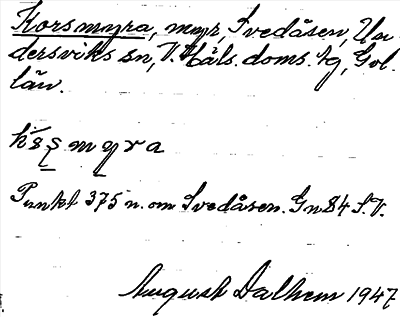 Korsmyra, myr, Svedåsen, Un-
dersviks sn, V. Häls. doms. tg, Gvl.
län.
Punkt 375 n. om Svedåsen. Gn 84 S.V.
August Dalhem 1947